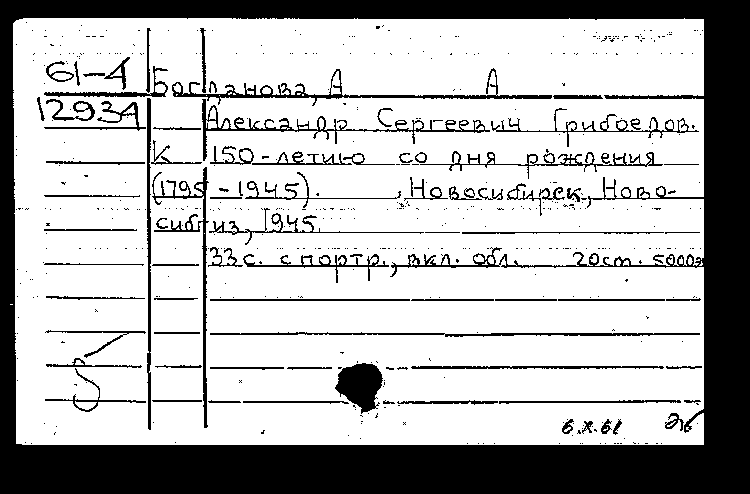 61-4 Богданова, А А
12934 Александр Сергеевич Грибоедов.
К 150-летию со дня рождения
(1795-1945). , Новосибирск, Ново-
сибгиз, 1945.
33с. с портр., вкл. обл. 20см. 5000э
6.X.61